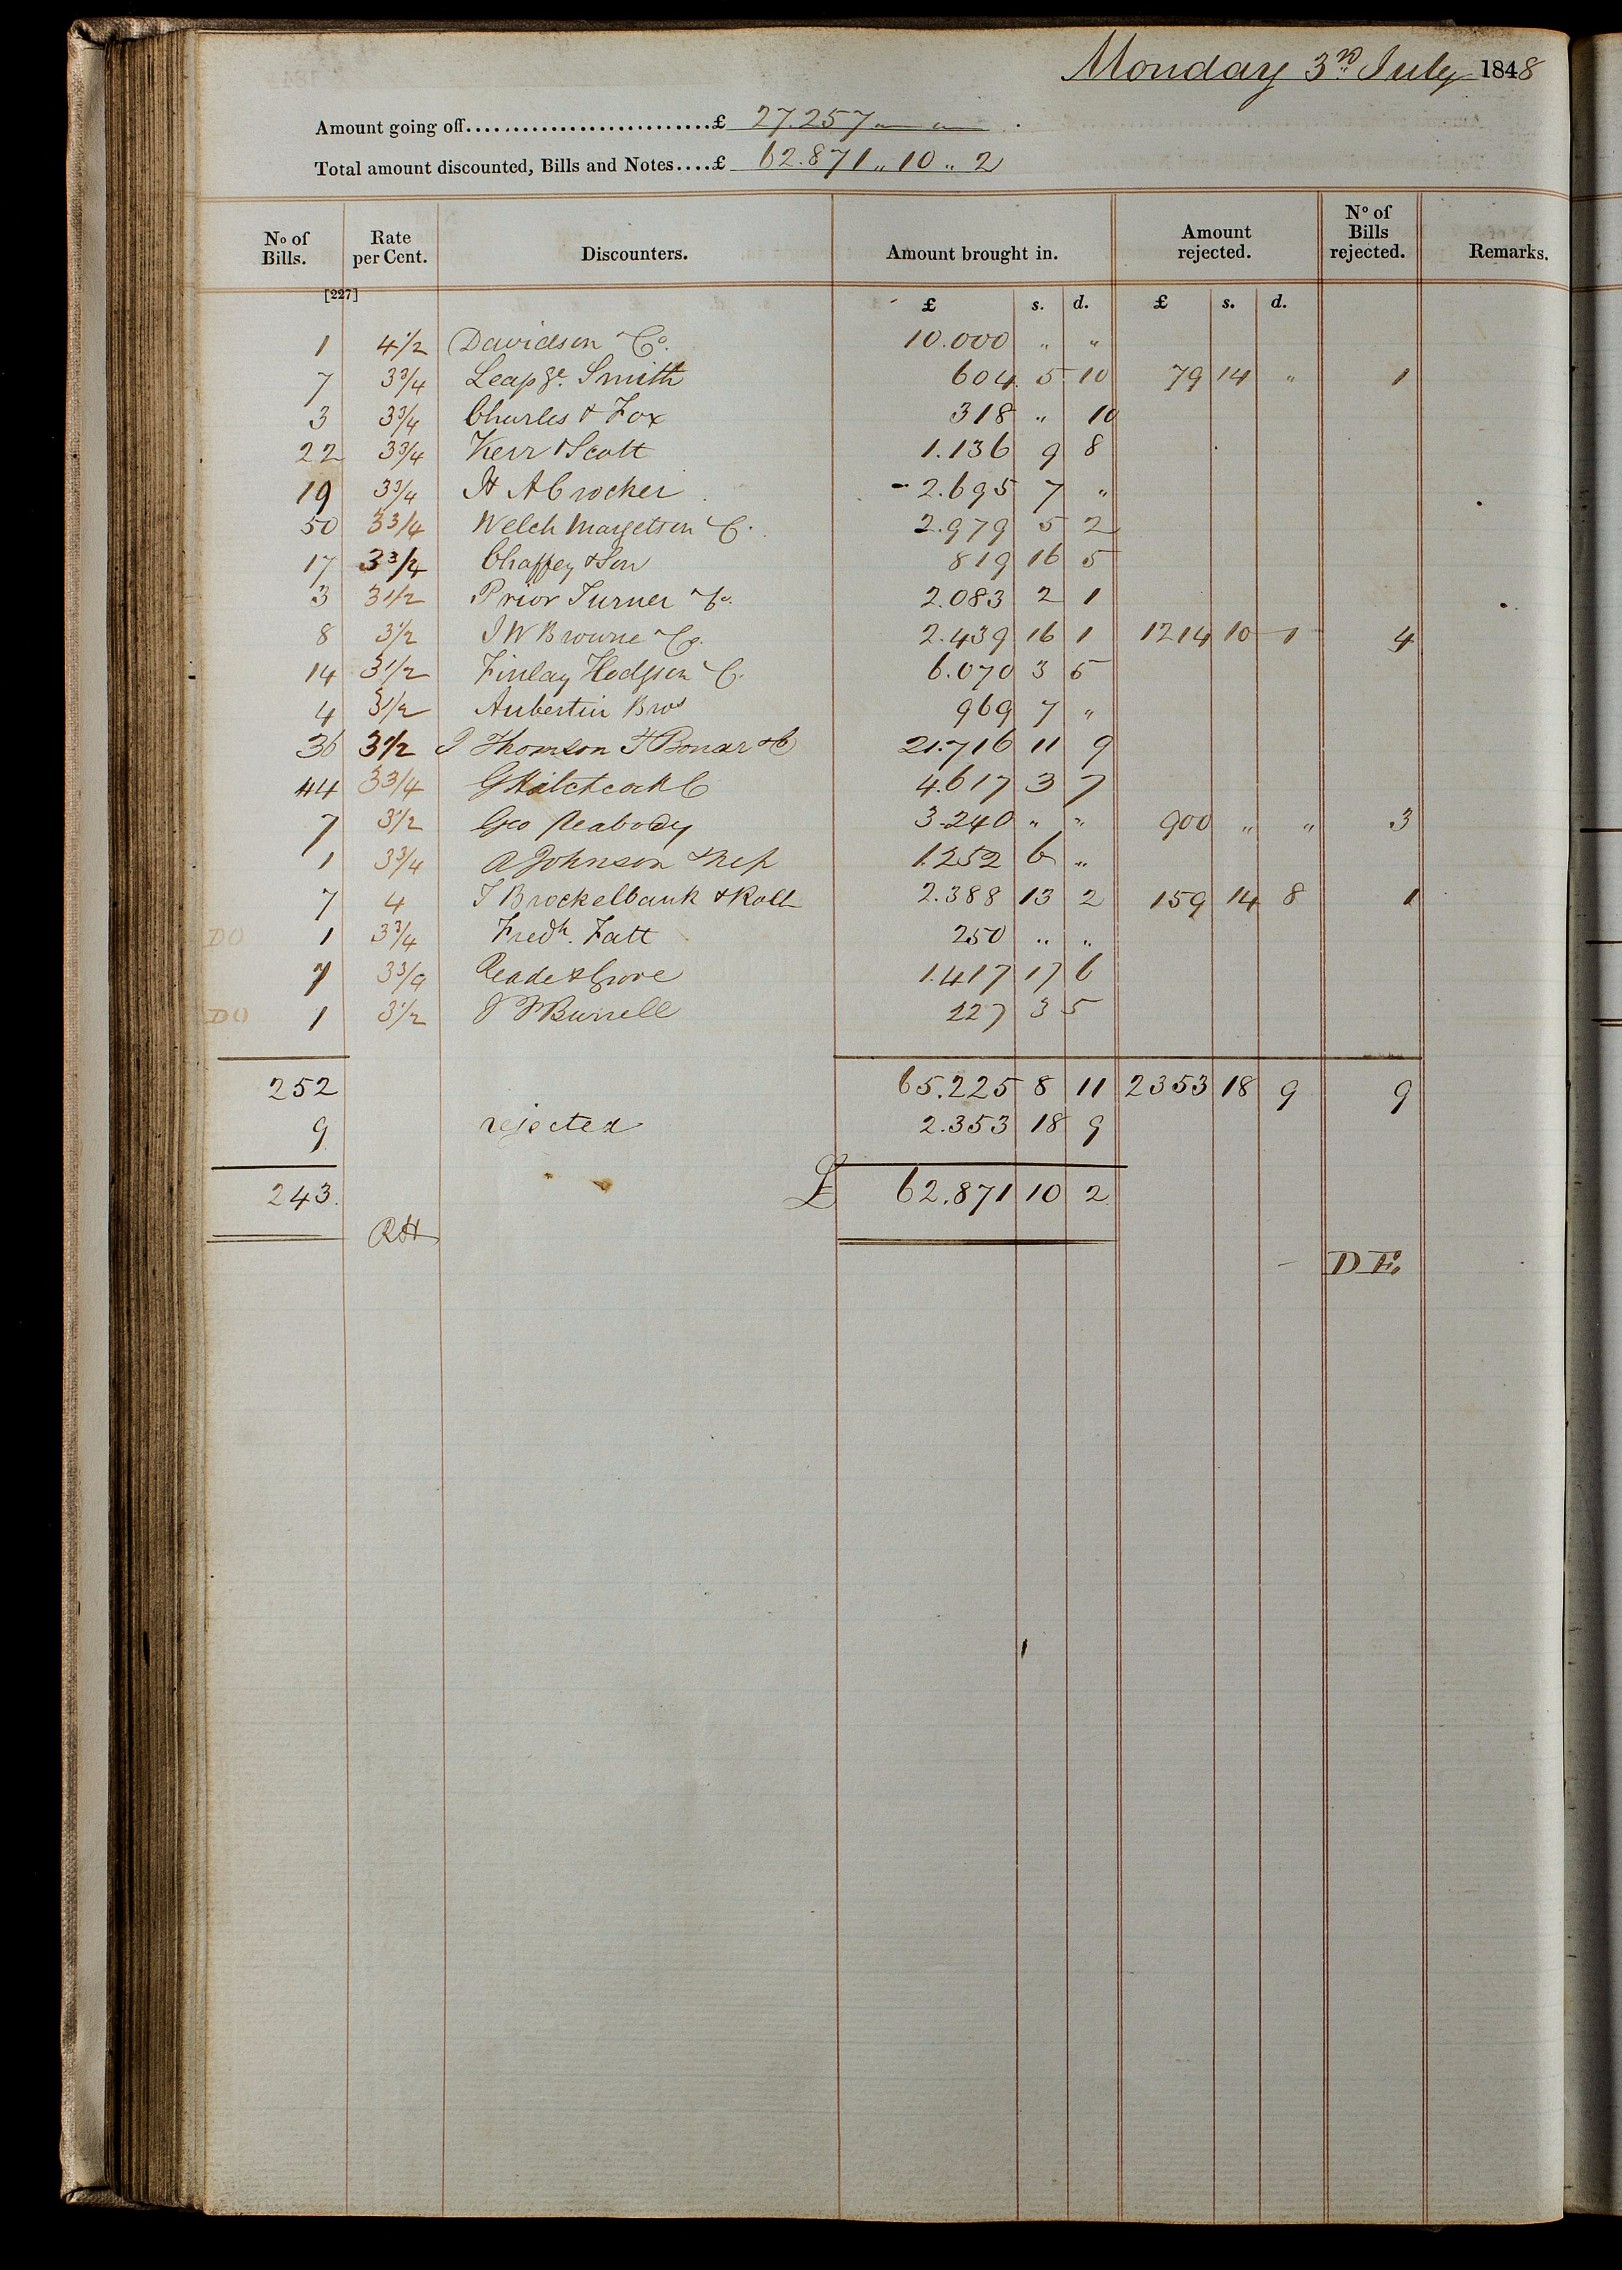 Monday 3rd July 1848
Amount going off...........................£ 27.257 " "
Total amount discounted, Bills and Notes....£ 62.871 " 10 " 2
No of Bills. Rate per Cent. Discounters. Amount brought in. Amount rejected. No of Bills rejected. Remarks.
[227] £ s. d. £ s. d.
1 4 1/2 Davidson & Co. 10.000 " "
7 3 3/4 Leaf Smith 604 5 10 79 14 " 1
3 3 3/4 Charles & Fox 318 " 10
22 3 3/4 Kerr & Scott 1.136 9 8
19 3 3/4 H A Crocker 2.695 7 "
50 3 3/4 Welch Margetson & C. 2.979 5 2
17 3 3/4 Chaffey & Son 819 16 5
3 3 1/2 Prior Turner & Co. 2.083 2 1
8 3 1/2 J W Browne & Co. 2.439 16 1 1214 10 1 4
14 3 1/2 Finlay Hodgson & C. 6.070 3 5
4 3 1/2 Aubertin Bros 969 7 "
36 3 1/2 J Thomson T Bonar & C 21.716 11 9
44 3 3/4 G Hitchcock & C 4.617 3 7
7 3 1/2 Geo Peabody 3.240 " " 900 " " 3
1 3 3/4 A Johnson & Nep 1.252 6 "
7 4 J Brockelbank & Rolls 2.388 13 2 159 14 8 1
DO 1 3 3/4 Fredk. Fatt 250 " "
7 3 3/4 Reade & Grove 1.417 17 6
DO 1 3 1/2 Burrell 227 3 5
252 65.225 8 11 2353 18 9 9
9 rejected 2.353 18 9
243. £ 62.871 10 2
RH
D E.